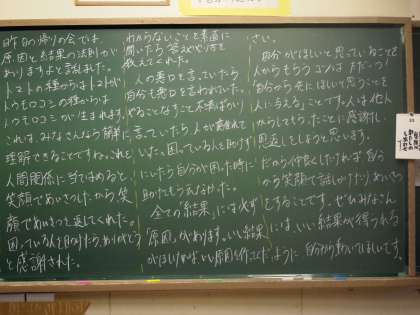 昨日の帰りの会では、
原因と結果の法則が
ありますよと話しました。
トマトの種からはトマトが
トウモロコシの種からは
トウモロコシが生まれます。
これは、みなさんなら簡単に
理解できることですね。これを
人間関係に当てはめると、
笑顔であいさつしたから笑
顔であいさつを返してくれた。
困っている人を助けたら、ありがとう
と感謝された。
わからないことを素直に
聞いたら答えややり方を
教えてくれた。
人の悪口を言っていたら
自分も悪口を言われていた。
やることなすこと不満ばかり
言っていたら人が離れて
いった。困っている人を助けず
にいたら自分が困った時に
助けてもらえなかった。
全ての「結果」には必ず
「原因」があります。いい結果
がほしければいい原因を作ってくだ
さい。
自分がほしいと思っていることを
人からもらうコツは
自分から先にほしいと思うことを
人に与えることです。人は他人
からしてもらったことに感謝し
恩返しをしようと思います。
だから仲良くしたければ自分
から笑顔で話しかけたりあいさつ
をすることです。ぜひみなさん
には、いい結果が得られる
ように自分から動いてほしいです。